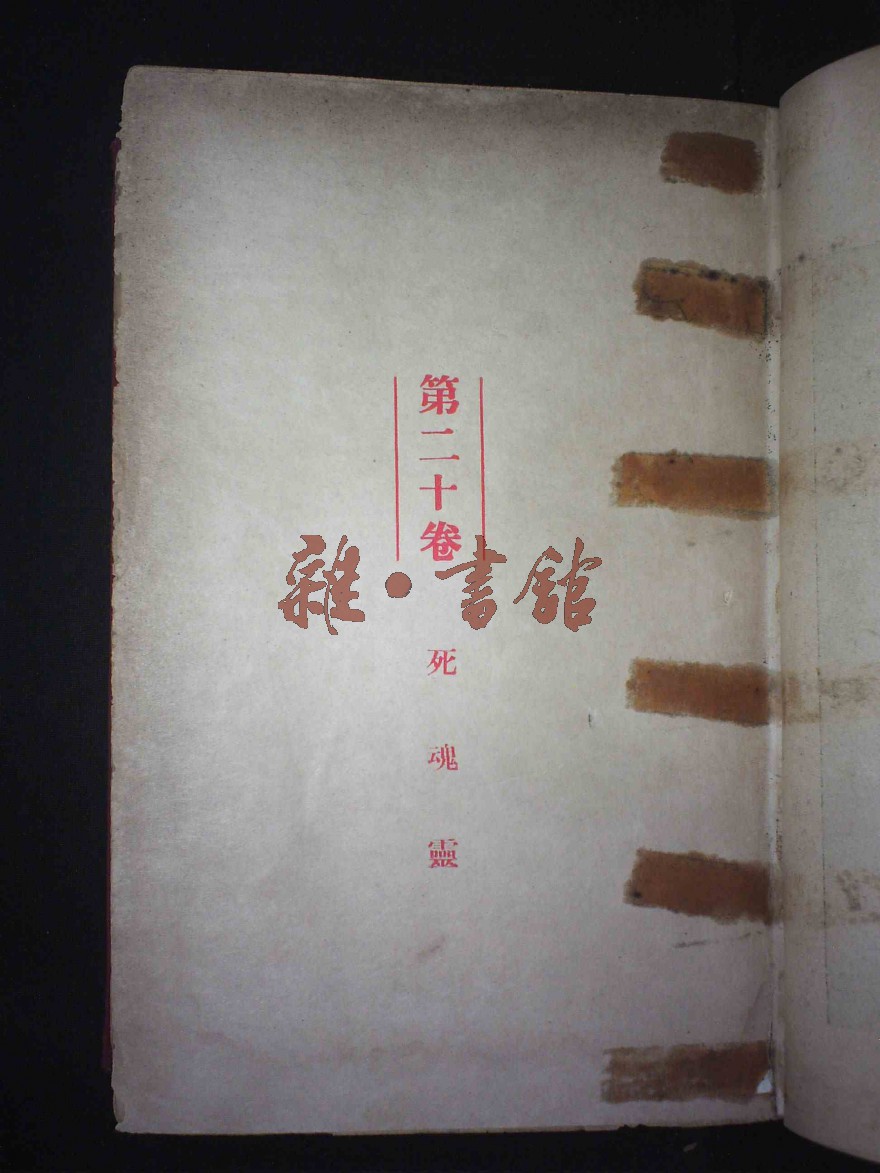 第二十卷
死魂靈
雜·書館